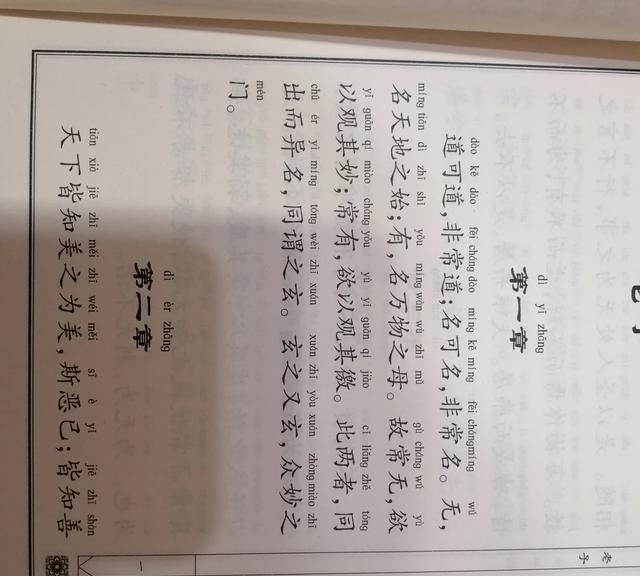 dì yī zhāng
第一章
dào kě dào fēi cháng dào míng kě míng fēi cháng míng wú
道可道，非常道；名可名，非常名。无，
míng tiān dì zhī shǐ yǒu míng wàn wù zhī mǔ gù cháng wú yù
名天地之始；有，名万物之母。故常无，欲
yǐ guān qí miào cháng yǒu yù yǐ guān qí jiào cǐ liǎng zhě tóng
以观其妙；常有，欲以观其徼。此两者，同
chū ér yì míng tóng wèi zhī xuán xuán zhī yòu xuán zhòng miào zhī
出而异名，同谓之玄。玄之又玄，众妙之
mén
门。
dì èr zhāng
第二章
tiān xià jiē zhī měi zhī wéi měi sī è yǐ jiē zhī shàn
天下皆知美之为美，斯恶已；皆知善
老子
一